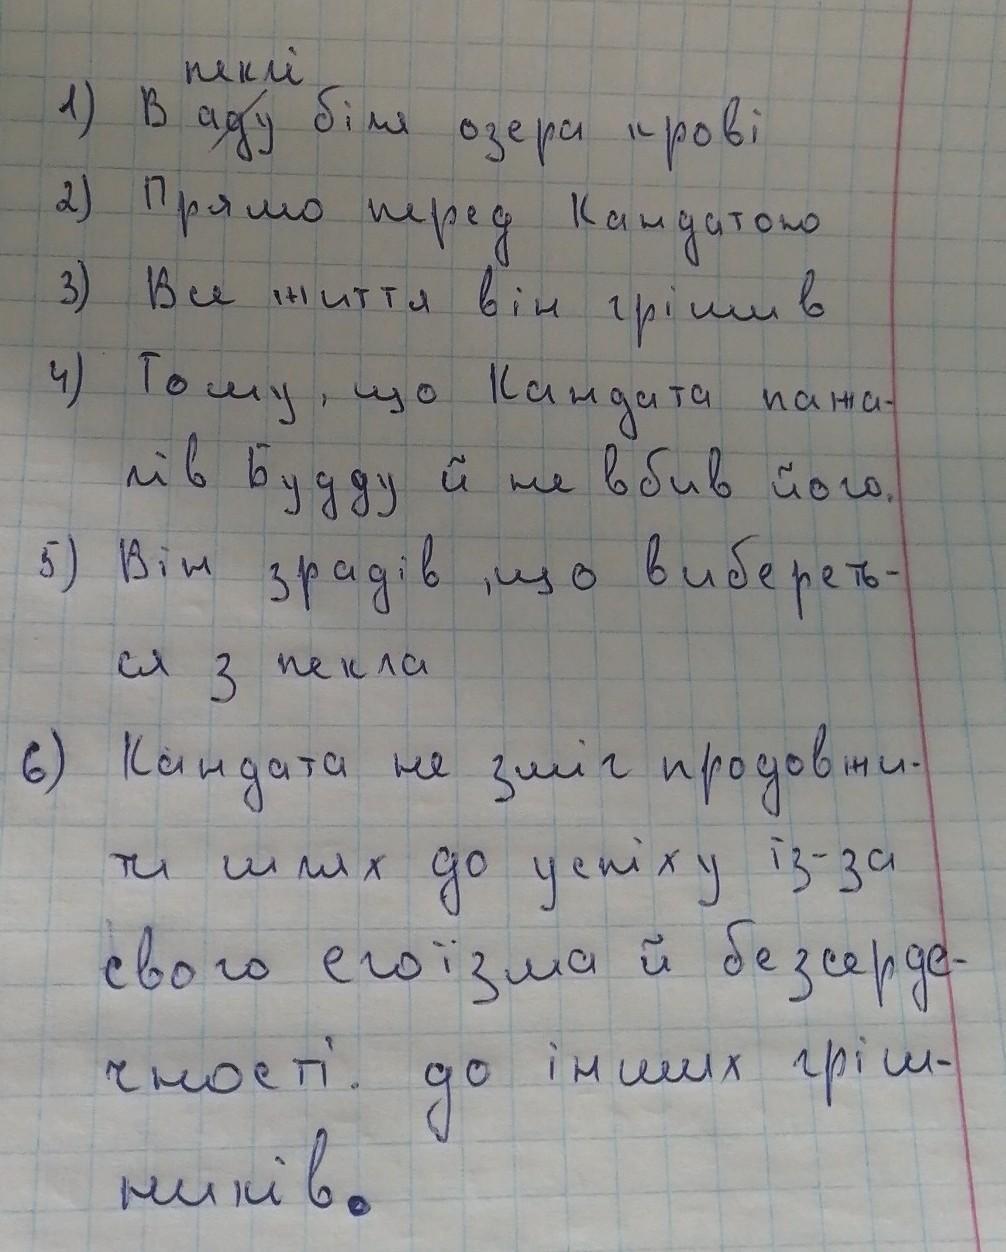 пеклі
1) В аду біля озера крові
2) Прямо перед Кандатою
3) Все життя він грішив
4) Тому, що Кандата пажа-
лів Будду й не вбив його.
5) Він зрадів ,що вибереть-
ся з пекла
6) Кандата не зміг продовжи-
ти шлях до успіху із-за
свого егоїзма й безсерде-
чності. до інших гріш-
ників.